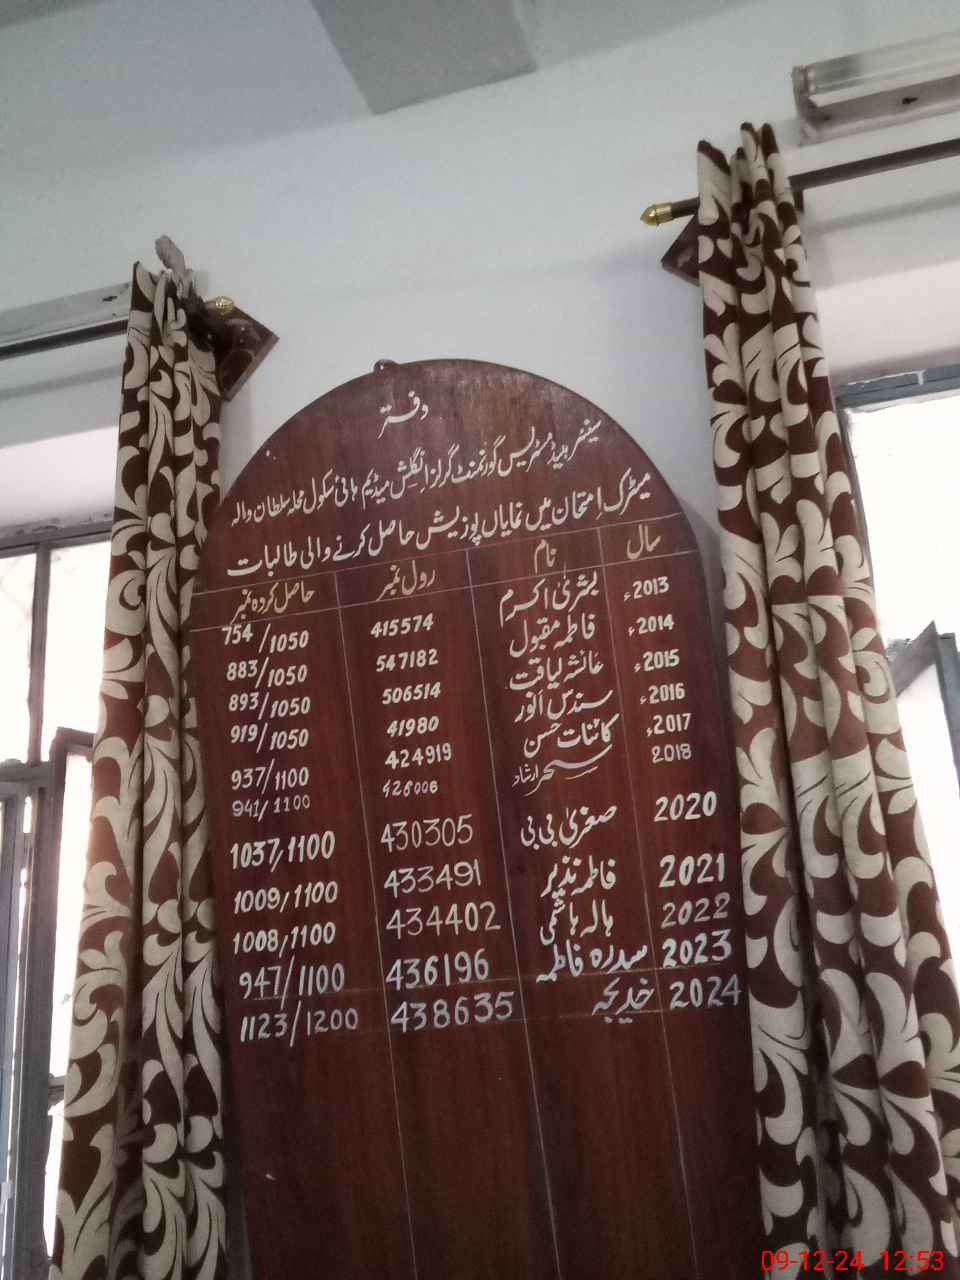 دفتر
سینئر ہیڈ مسٹریس گورنمنٹ گرلز انگلش میڈیم ہائی سکول محلہ سلطان والہ
میٹرک امتحان میں نمایاں پوزیشن حاصل کرنے والی طالبات
سال نام رول نمبر حاصل کردہ نمبر
2013ء بشریٰ اکرم 415574 754/1050
2014ء فاطمہ مقبول 547182 883/1050
2015ء عائشہ لیاقت 506514 893/1050
2016ء سندس انور 41980 919/1050
2017ء کائنات حسن 424919 937/1100
2018 سحر ارشاد 426006 941/1100
2020 صغریٰ بی بی 430305 1037/1100
2021 فاطمہ نذیر 433491 1009/1100
2022 ہالہ ہاشمی 434402 1008/1100
2023 سدرہ فاطمہ 436196 947/1100
2024 خدیجہ 438635 1123/1200
09-12-24 12:53